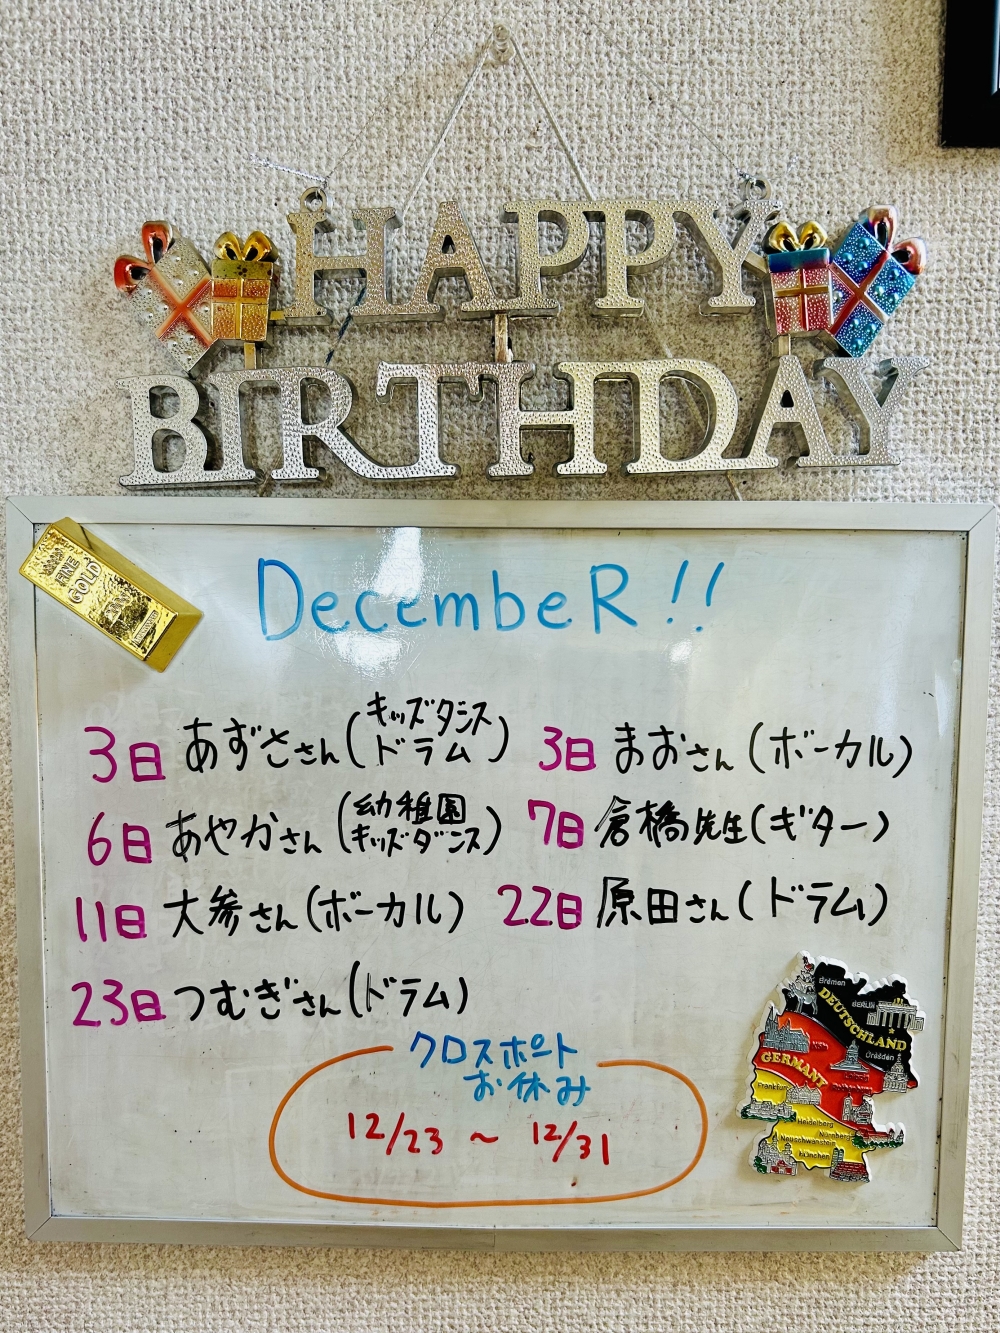 HAPPY
BIRTHDAY
FINE
GOLD
DecembeR!!
3日 あずささん(キッズダンス
ドラム)
3日 まおさん(ボーカル)
6日 あやかさん(幼稚園
キッズダンス)
7日 倉橋先生(ギター)
11日 大参さん(ボーカル)
22日 原田さん(ドラム)
23日 つむぎさん(ドラム)
クロスポート
お休み
12/23 ~ 12/31
Bremen
BERLIN
DEUTSCHLAND
Köln
Dresden
GERMANY
Frankfurt
Heidelberg
Nürnberg
Neuschwanstein
München